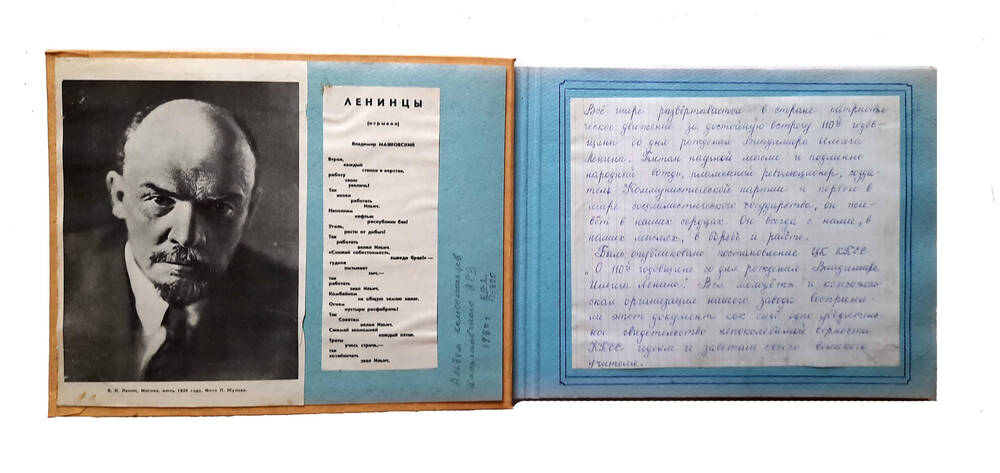 ЛЕНИНЦЫ
(отрывок)
Владимир МАЯКОВСКИЙ
Верои,
каждый
станок и верстак,
работу
свою
увеличь!
Так
велел
работать
Ильич.
Наполним
нефтью
республики бак!
Уголь,
расти от добыч!
Так
работать
велел Ильич.
«Снижай себестоимость,
выведи брак!»—
гудков
вызывает
зыч,—
так
работать
звал Ильич.
Комбайном
на общую землю наляг.
Огнем
пустыри расфабричь!
Так
Советам
велел Ильич.
Сжимай экономией
каждый пятак.
Траты
учись стричь,—
так
хозяйничать
звал Ильич.
В. И. Ленин, Москва, июль 1920 года. Фото П. Жукова.
Альбом комсомольцев
АРЗ
1980 г.
Всё шире развёртывается в стране патриоти-
ческое движение за достойную встречу 110ой годов-
щины со дня рождения Владимира Ильича
Ленина. Титан научной мысли и подлинно
народный вождь, пламенный революционер, созда-
тель Коммунистической партии и первого в
мире социалистического государства, он жи-
вёт в наших сердцах. Он всегда с нами, в
наших мыслях, в борьбе и работе.
Было опубликовано постановление ЦК КПСС
"О 110ой годовщине со дня рождения Владимира
Ильича Ленина." Вся молодёжь и комсомоль-
ская организация нашего завода восприня-
ли этот документ как ещё одно убедитель-
ное свидетельство непоколебимой верности
КПСС идеям и заветам своего великого
учителя.